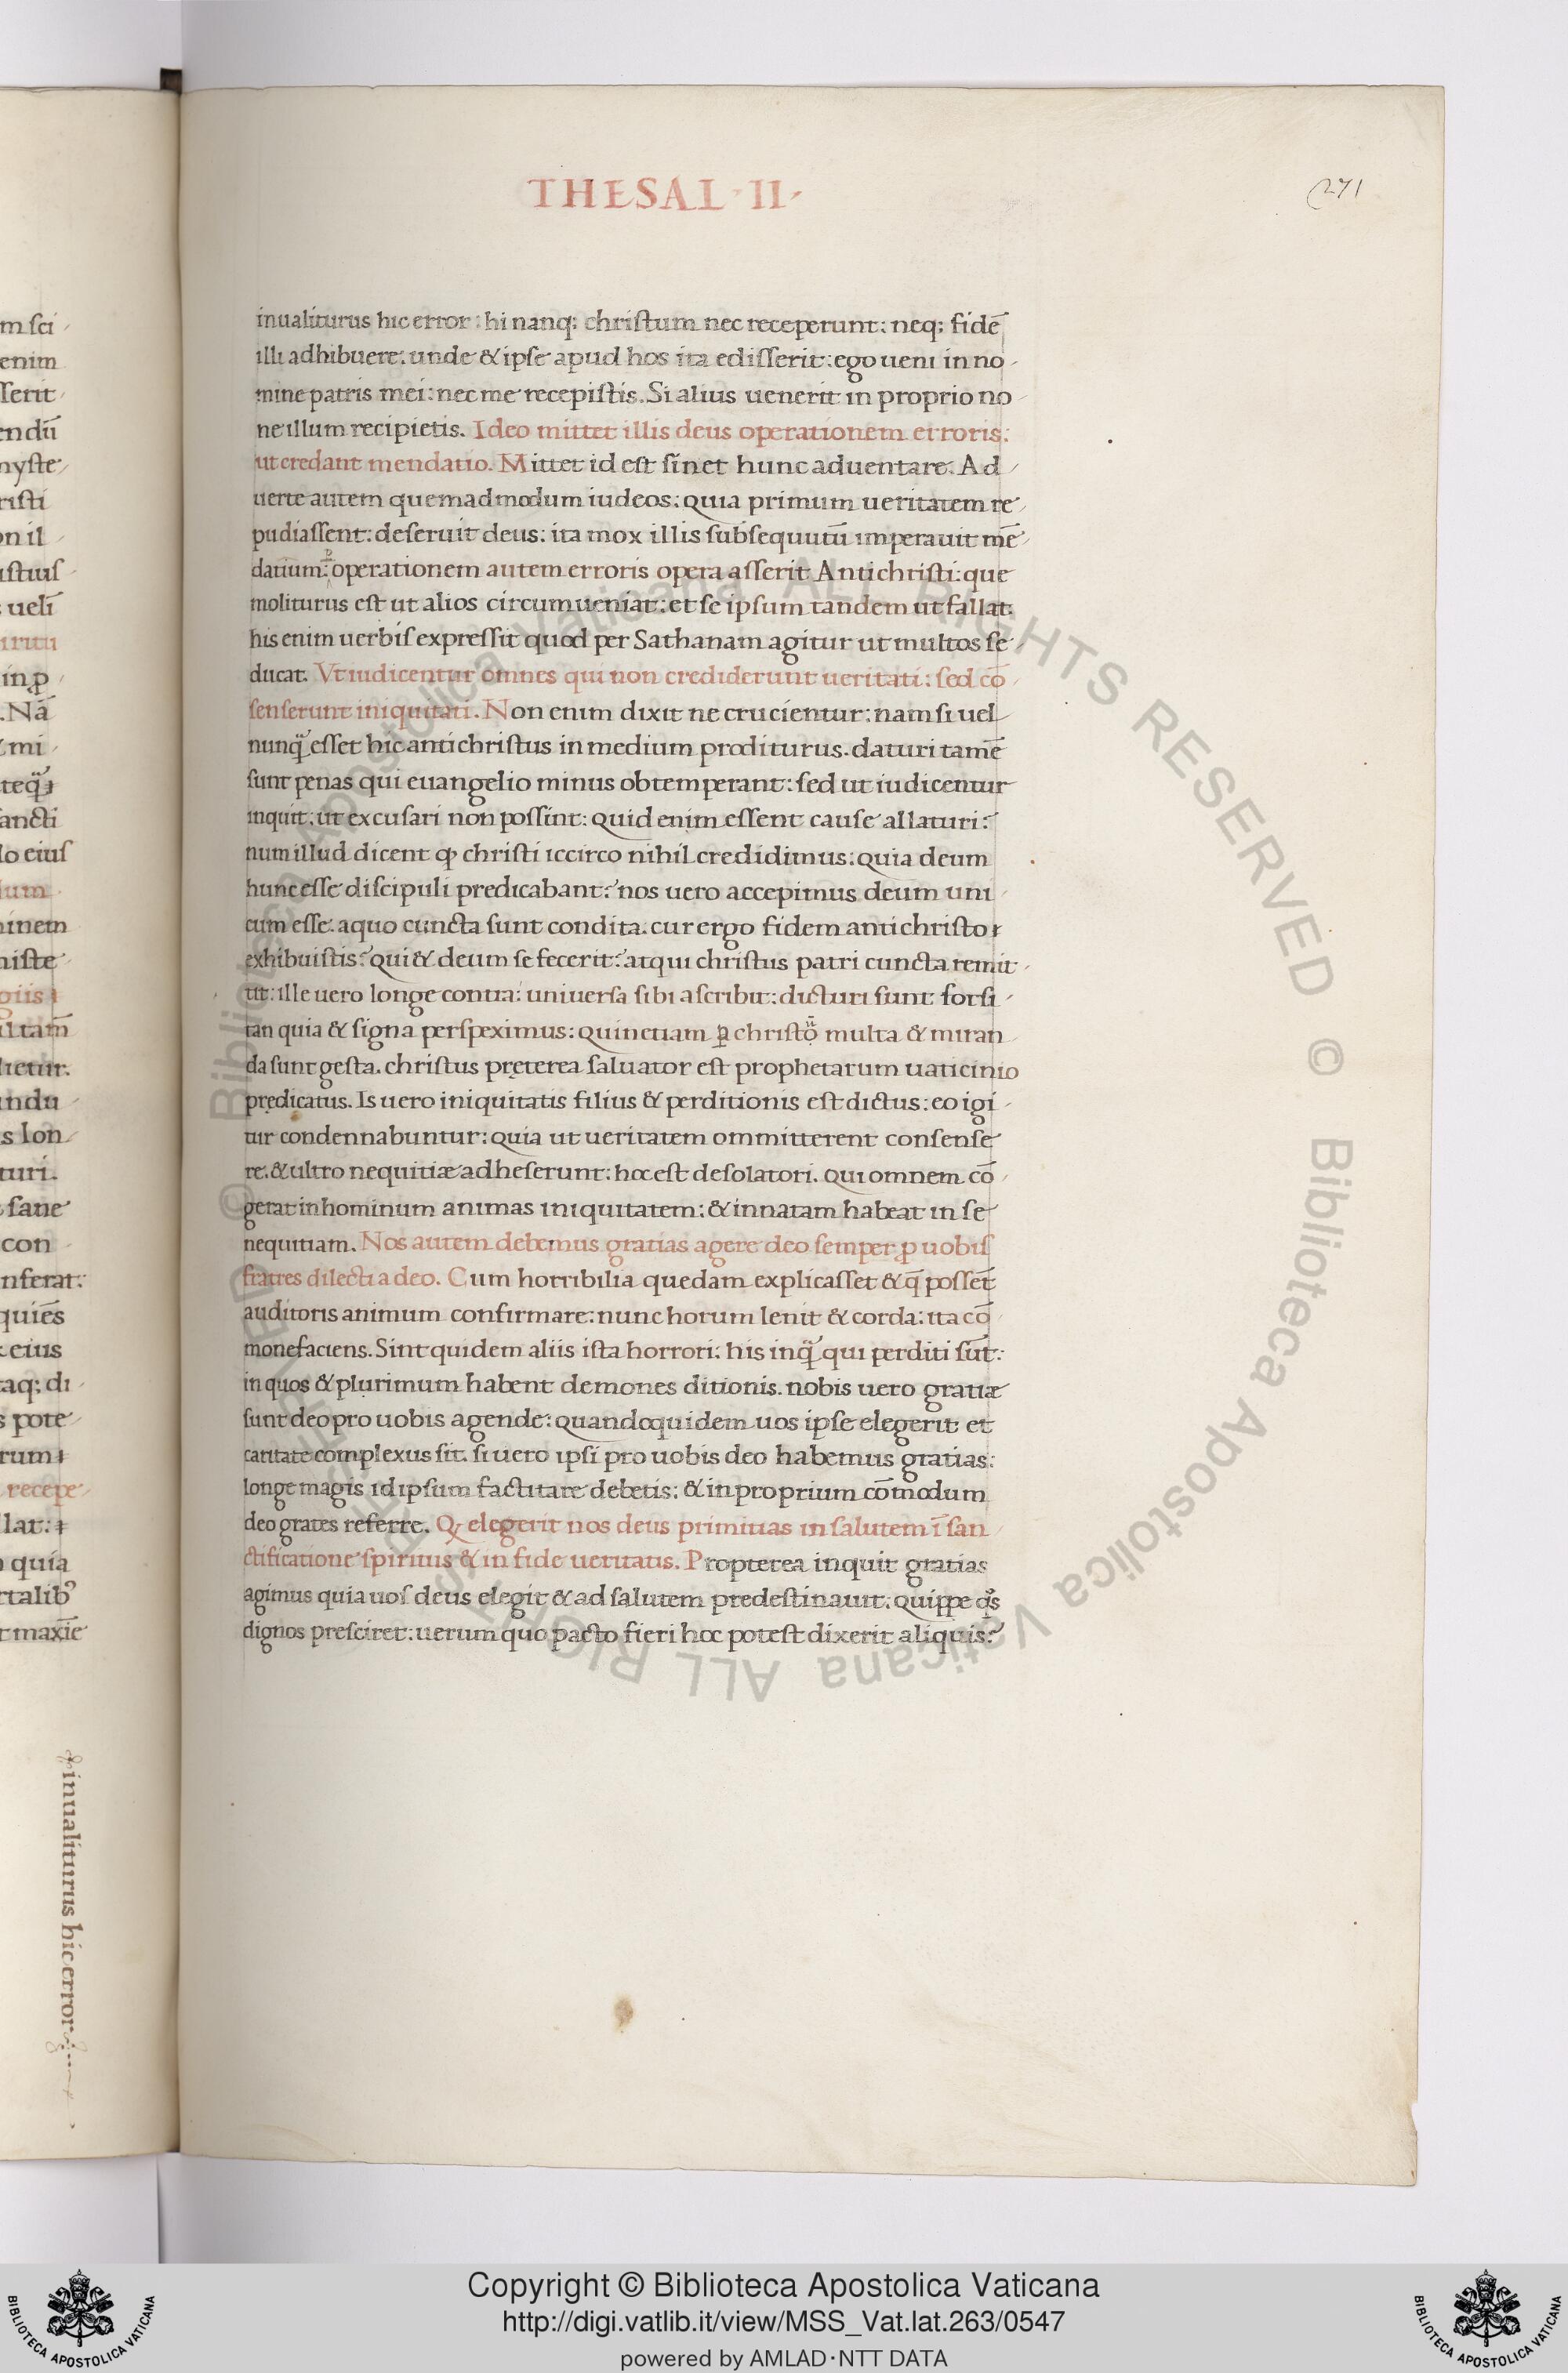 THESAL · II ·
271
inualiturus hic error : hi nanq; christum nec receperunt: neq; fidē
illi adhibuere: unde & ipse apud hos ita edisserit: ego ueni in no
mine patris mei: nec me recepistis. Si alius uenerit in proprio no
ne illum recipietis. Ideo mittet illis deus operationem erroris:
ut credant mendatio. Mittet id est sinet hunc aduentare. Ad
uerte autem quemadmodum iudeos: quia primum ueritatem re
pudiassent: deseruit deus: ita mox illis subsequutū imperauit mē
datium: operationem autem erroris opera asserit Antichristi: que
moliturus est ut alios circumueniat: et se ipsum tandem ut fallat:
his enim uerbis expressit quod per Sathanam agitur ut multos se
ducat. Vt iudicentur omnes qui non crediderunt ueritati: sed cō
senserunt iniquitati. Non enim dixit ne crucientur: nam si uel
nunq̃ esset hic antichristus in medium proditurus. daturi tamē
sunt penas qui euangelio minus obtemperant: sed ut iudicentur
inquit: ut excusari non possint: quid enim essent cause allaturi?
num illud dicent ꝙ christi iccirco nihil credidimus: quia deum
hunc esse discipuli predicabant? nos uero accepimus deum uni
cum esse. a quo cuncta sunt condita. cur ergo fidem antichristo
exhibuistis? qui & deum se fecerit? atqui christus patri cuncta remit
tit: ille uero longe contra: uniuersa sibi ascribit: dicturi sunt forsi
tan quia & signa perspeximus: quinetiam ꝑ christū multa & miran
da sunt gesta. christus pręterea saluator est prophetarum uaticinio
prędicatus. Is uero iniquitatis filius & perditionis est dictus: eo igi
tur condennabuntur: quia ut ueritatem ommitterent consense
re. & ultro nequitiæ adheserunt: hoc est desolatori. qui omnem cō
gerat in hominum animas iniquitatem: & innatam habeat in se
nequitiam. Nos autem debemus gratias agere deo semper ꝓ uobis
fratres dilecti a deo. Cum horribilia quedam explicasset & q̄ possēt
auditoris animum confirmare: nunc horum lenit & corda: ita cō
monefaciens. Sint quidem aliis ista horrori: his inq̃ qui perditi sūt:
in quos & plurimum habent demones ditionis. nobis uero gratiæ
sunt deo pro uobis agende: quandoquidem uos ipse elegerit et
caritate complexus sit. si uero ipsi pro uobis deo habemus gratias:
longe magis id ipsum factitare debetis: & in proprium cōmodum
deo grates referre. Qꝫ elegerit nos deus primitias in salutem ī san
ctificatione spiritus & in fide ueritatis. Propterea inquit gratias
agimus quia uos deus elegit & ad salutem predestinauit. quippe q̃s
dignos presciret: uerum quo pacto fieri hoc potest dixerit aliquis?
m sci
enim
sserit
endū
myste
risti
on il
ustius
uelī
iritu
in ꝓ
. Nā
& mi
teq̃
sancti
lo eius
ium
minem
niste
giis
ultam̄
hetur.
undu
s lon
turi.
sane
con
nferat:
quiēs
eius
taq; di
s pote
rum
recepe
lat:
quia
rtalibꝰ
maxīe
inualiturus hic error
© Biblioteca Apostolica Vaticana ALL RIGHTS RESERVED © Biblioteca Apostolica Vaticana ALL RIGHTS RESERVED
BIBLIOTECA APOSTOLICA VATICANA
Copyright © Biblioteca Apostolica Vaticana
http://digi.vatlib.it/view/MSS_Vat.lat.263/0547
powered by AMLAD·NTT DATA
BIBLIOTECA APOSTOLICA VATICANA